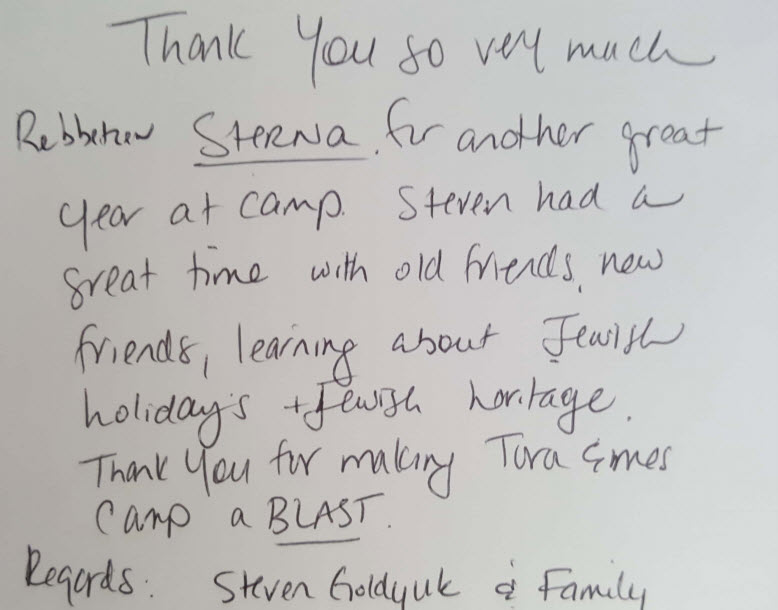 Thank You so very much
Rebbetzen STERNA, for another great
year at camp. Steven had a
great time with old friends, new
friends, learning about Jewish
holiday's + Jewish heritage.
Thank You for making Tora Emes
Camp a BLAST.
Regards: Steven Goldyuk & Family